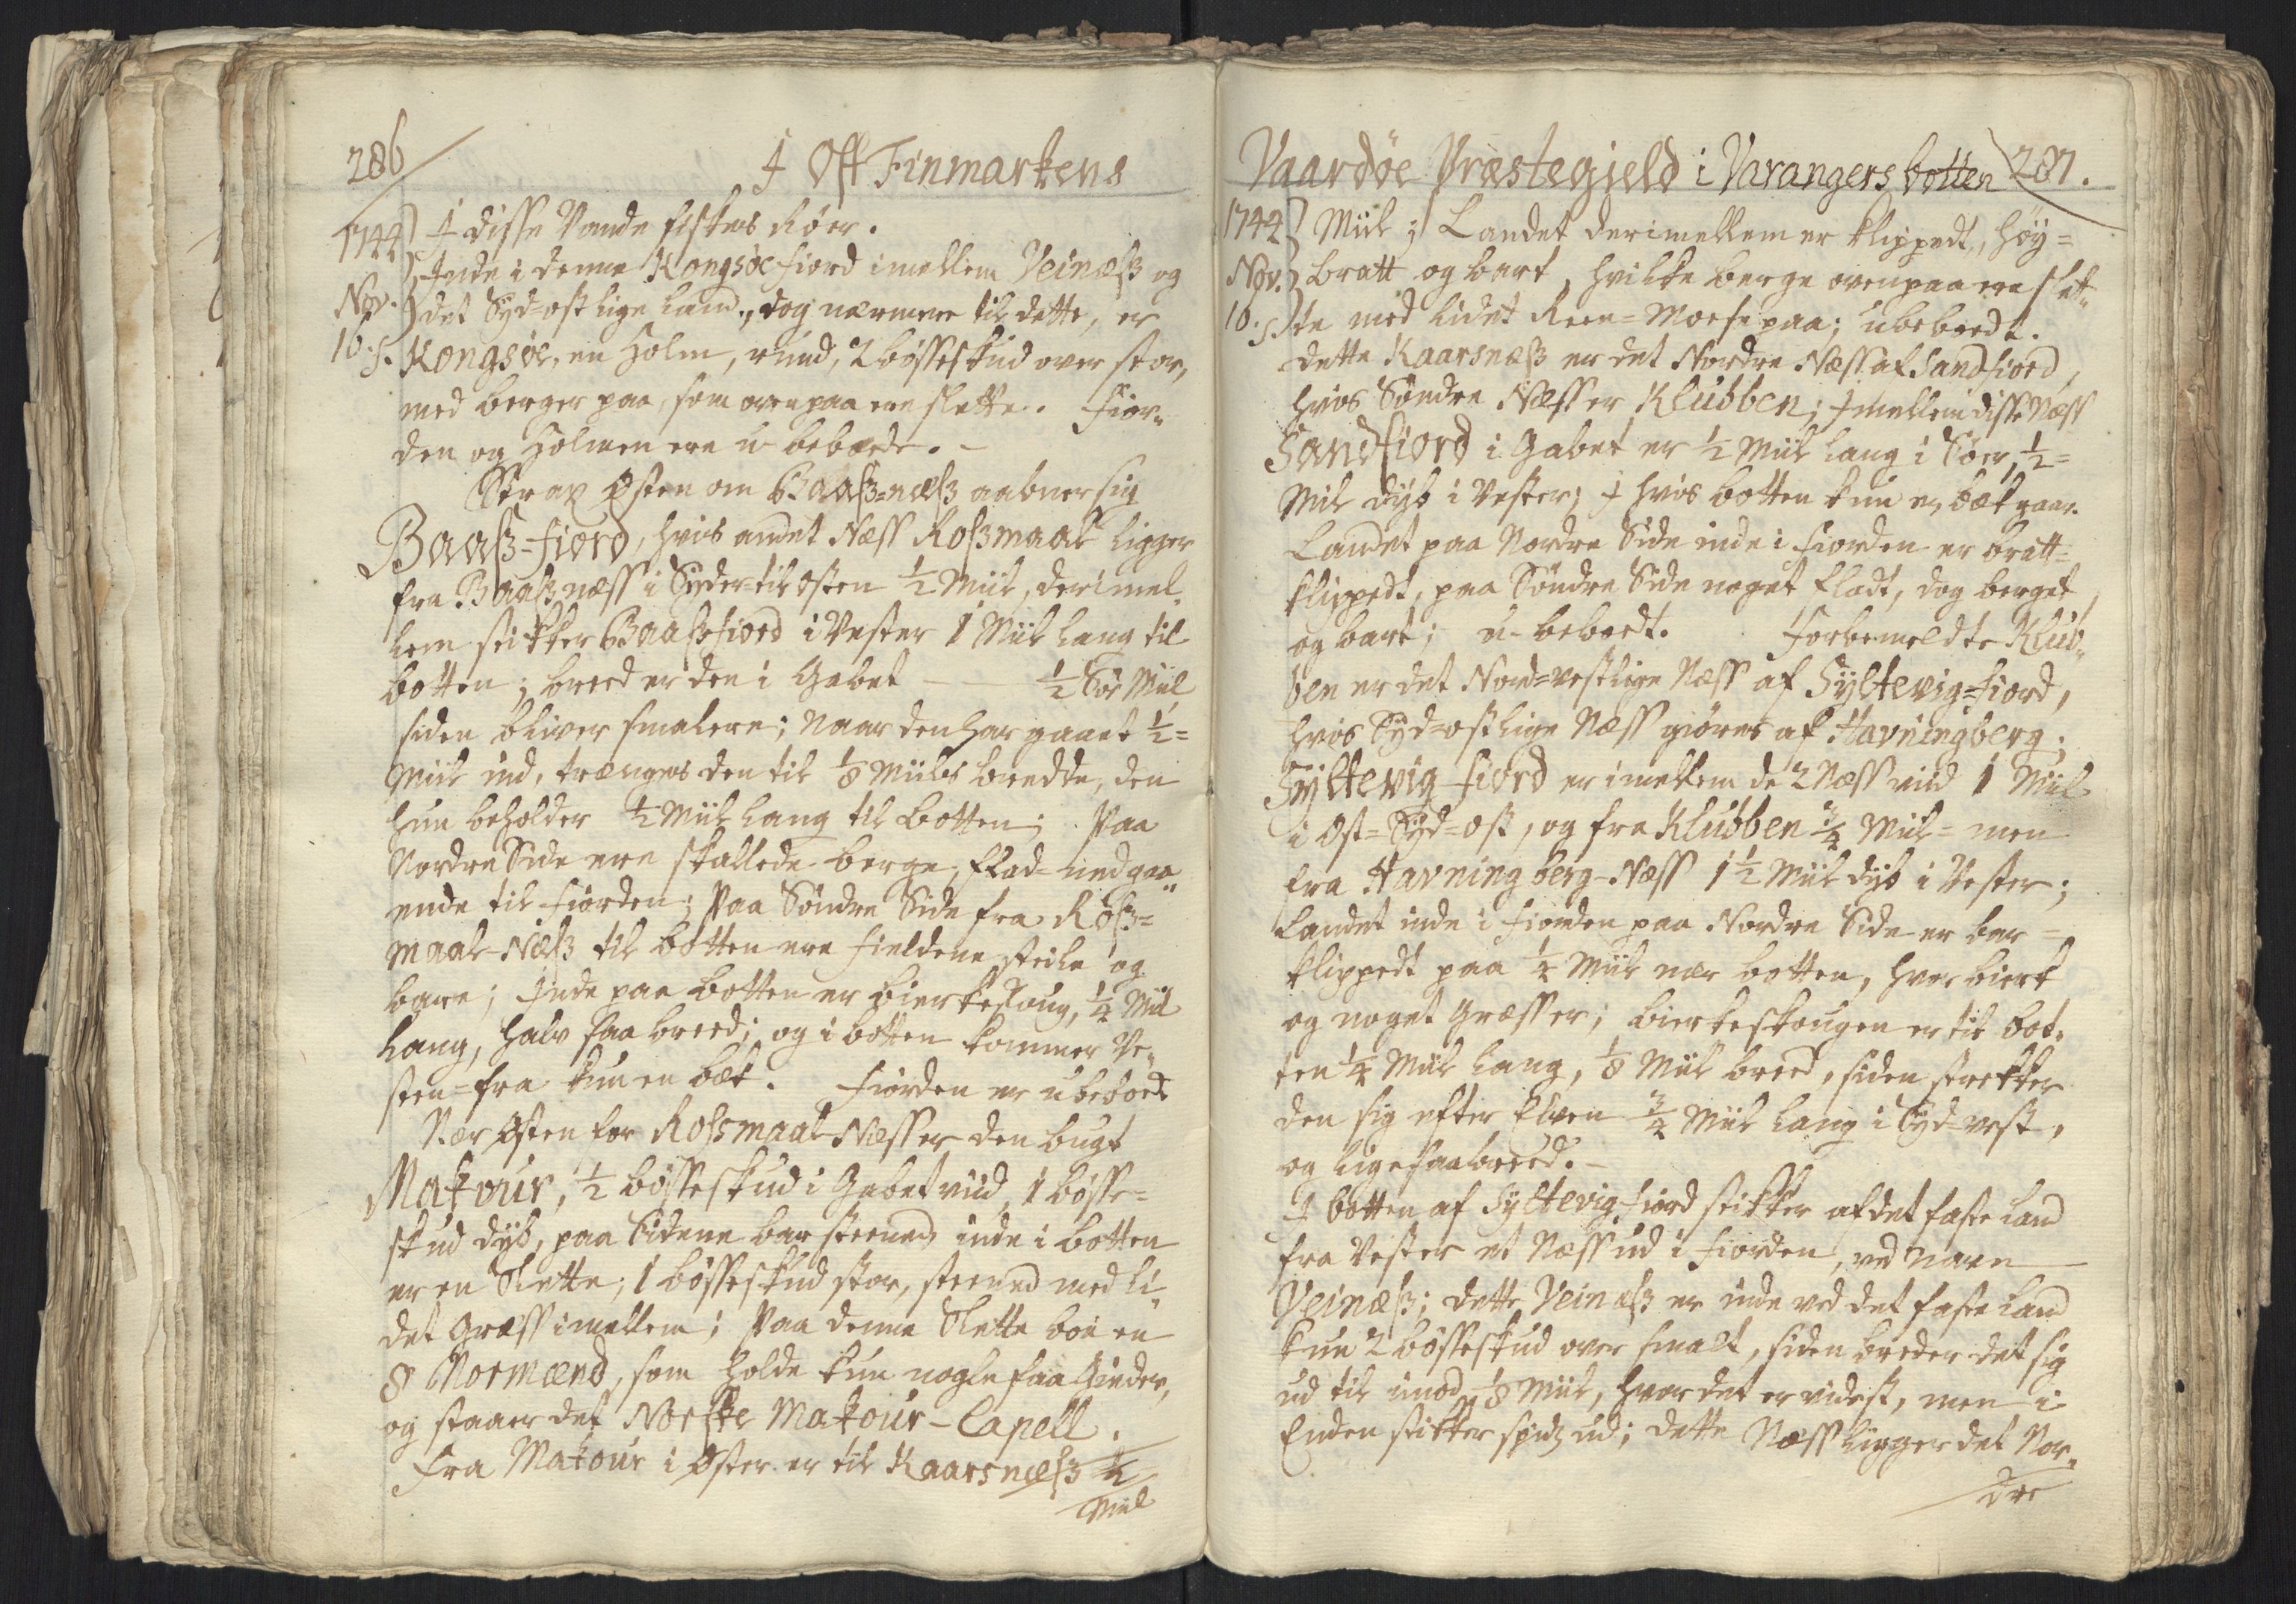 286
I Ost Finmarkens
1744 I disse Vande fiskes Røer.
Inde i denne Kongsøe fiord imellem Veinæss og
Nov. det Syd-ostlige land, dog nærmere til dette, er
16. s. Kongsøe, en Holm, rund, 2 bøsseskud over stor,
med berger paa, som ovenpaa ere slette. Fior-
den og Holmen ere u-beboede. -
Strax Østen om Baass-næss aabner sig
Baass-fiord, hvis andet Næss Rossmaal ligger
fra Baassnæss i Syder til Osten ½ Miil, derimel-
lem stikker Baassfiord i Vester 1 Miil lang til
botten; breed er den i Gabet — ½ Søe Miil,
siden bliver smalere; naar den har gaaet ½=
Miil ind, trænges den til ⅛ Miils bredde, den
hun beholder ½ Miil lang til botten; Paa
Nordre Side ere skallede berge, flad-nedgaa-
ende til fiorden; Paa Søndre Side fra Ross=
maal-Næss til botten ere fieldene steile og
bare; Inde paa botten er bierkeskoug, ¼ Miil
lang, halv saa breed; og i botten kommer Ve-
sten=fra kun en bæk. Fiorden er ubeboed.
Nær Østen for Rossmaal-Næss er den bugt
Makour, ½ bøsseskud i Gabet viid, 1 bøsse=
skud dyb, paa Sidene bar steened, inde i botten
er en Slette, 1 bøsseskud stor, steened med li-
det Græss imellem; Paa denne Slette boe en
8 Normænd, som holde kun nogle faa Gieder,
og staaer det Norske Makour-Capell.
Fra Makour i Øster er til Kaarsnæss ½
Miil
Vaardøe Præstegield i Varangersbotten 287.
1744 Miil; Landet derimellem er klippedt, høy=
Nov. bratt og bart, hvilke berge ovenpaa ere slet-
16. s. te med lidet Reen=Moese paa; ubeboedt.
Dette Kaarsnæss er det Nordre Næss af Sandfiord,
hvis Søndre Næss er Klubben; Imellem disse Næss
Sandfiord i Gabet er ½ Miil lang i Søer, ½=
Miil dyb i Vester; I hvis botten kun en bæk gaar.
Landet paa Nordre Side inde i fiorden er bratt=
klippedt, paa Søndre Side noget fladt, dog berget
og bart; u-beboedt. Forbemeldte Klub-
ben er det Nord=vestlige Næss af Syltevig=fiord,
hvis Syd=ostlige Næss giøres af Havningberg.
Syltevig fiord er imellem de 2 Næss viid 1 Miil
i Ost=Syd=Ost, og fra Klubben ¾ Miil= men
fra Havningberg-Næss 1½ Miil dyb i Vester;
Landet inde i fiorden paa Nordre Side er bar=
klippedt paa ¼ Miil nær botten, hvor bierk
og noget Græss er; bierkeskougen er til bot-
ten ¼ Miil lang, ⅛ Miil breed, siden strekker
den sig efter Elven ¾ Miil lang i Syd-vest,
og lige saa breed. -
I botten af Syltevig fiord stikker af det faste land
fra Vester et Næss ud i fiorden, ved Navn —
Veinæss; dette Veinæss er inde ved det faste land
kun 2 bøsseskud over smalt, siden breder det sig
ud til imod ⅛ Miil, hvor det er videst, men i
Enden stikker spids ud; dette Næss ligger det Nor-
dre